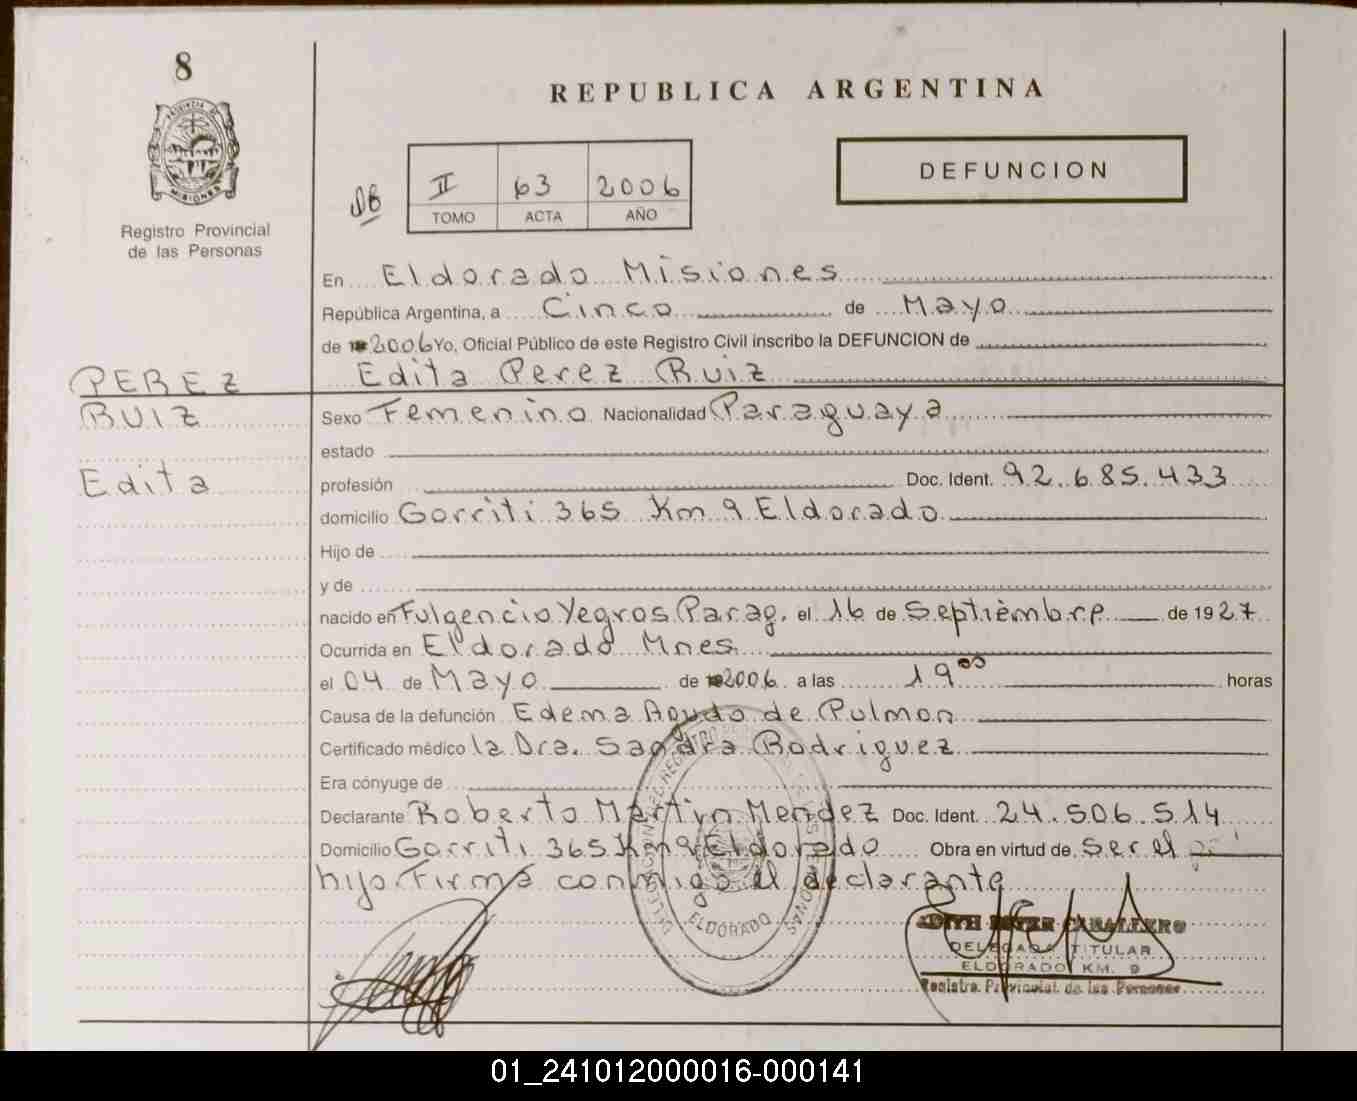 8
REPUBLICA ARGENTINA
PROVINCIA DE
MISIONES
DEFUNCION
II 63 2006
TOMO ACTA AÑO
Registro Provincial
de las Personas
En Eldorado Misiones
República Argentina, a Cinco de Mayo
de 2006 Yo, Oficial Público de este Registro Civil inscribo la DEFUNCION de
PEREZ
Edita Perez Ruiz
RUIZ
Sexo Femenino Nacionalidad Paraguaya
estado
Edita
profesión Doc. Ident. 92.685.433
domicilio Gorriti 365 Km 9 Eldorado
Hijo de
y de
nacido en Fulgencio Yegros Parag. el 16 de Septiembre de 1927
Ocurrida en Eldorado Mnes.
el 04 de Mayo de 2006 a las 19 00 horas
Causa de la defunción Edema Agudo de Pulmon
Certificado médico la Dra. Sandra Rodriguez
Era cónyuge de
Declarante Roberto Martin Mendez Doc. Ident. 24.506.514
Domicilio Gorriti 365 Km 9 Eldorado Obra en virtud de Ser el
hijo Firma conmigo el declarante
ELDORADO
CABALLERO
DELEGADA TITULAR
ELDORADO KM. 9
Registro Provincial de las Personas
01_241012000016-000141